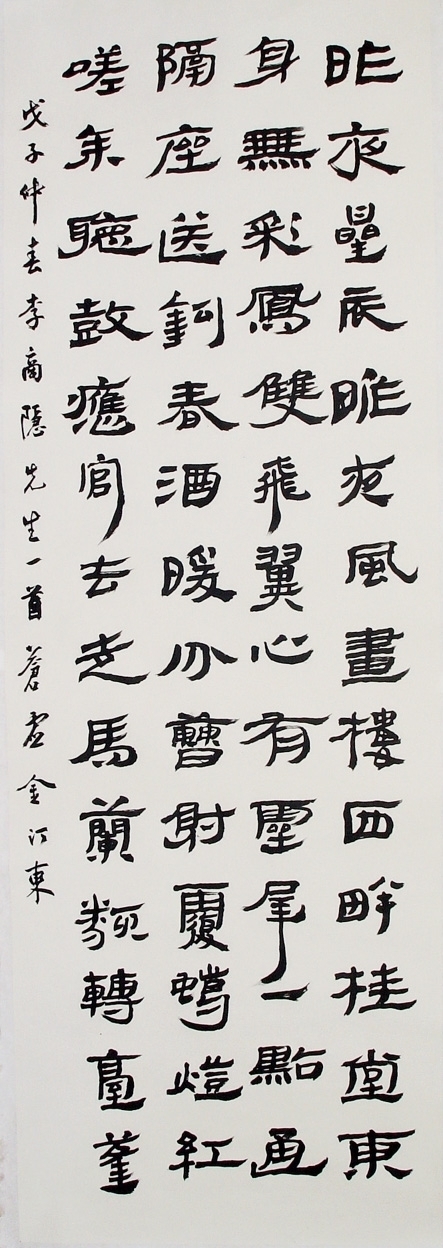 昨夜星辰昨夜風畫樓西畔桂堂東
身無彩鳳雙飛翼心有靈犀一點通
隔座送鉤春酒暖分曹射覆蠟燈紅
嗟余聽鼓應官去走馬蘭類轉臺蓬
戊子仲春李商隱先生一首蒼金江東